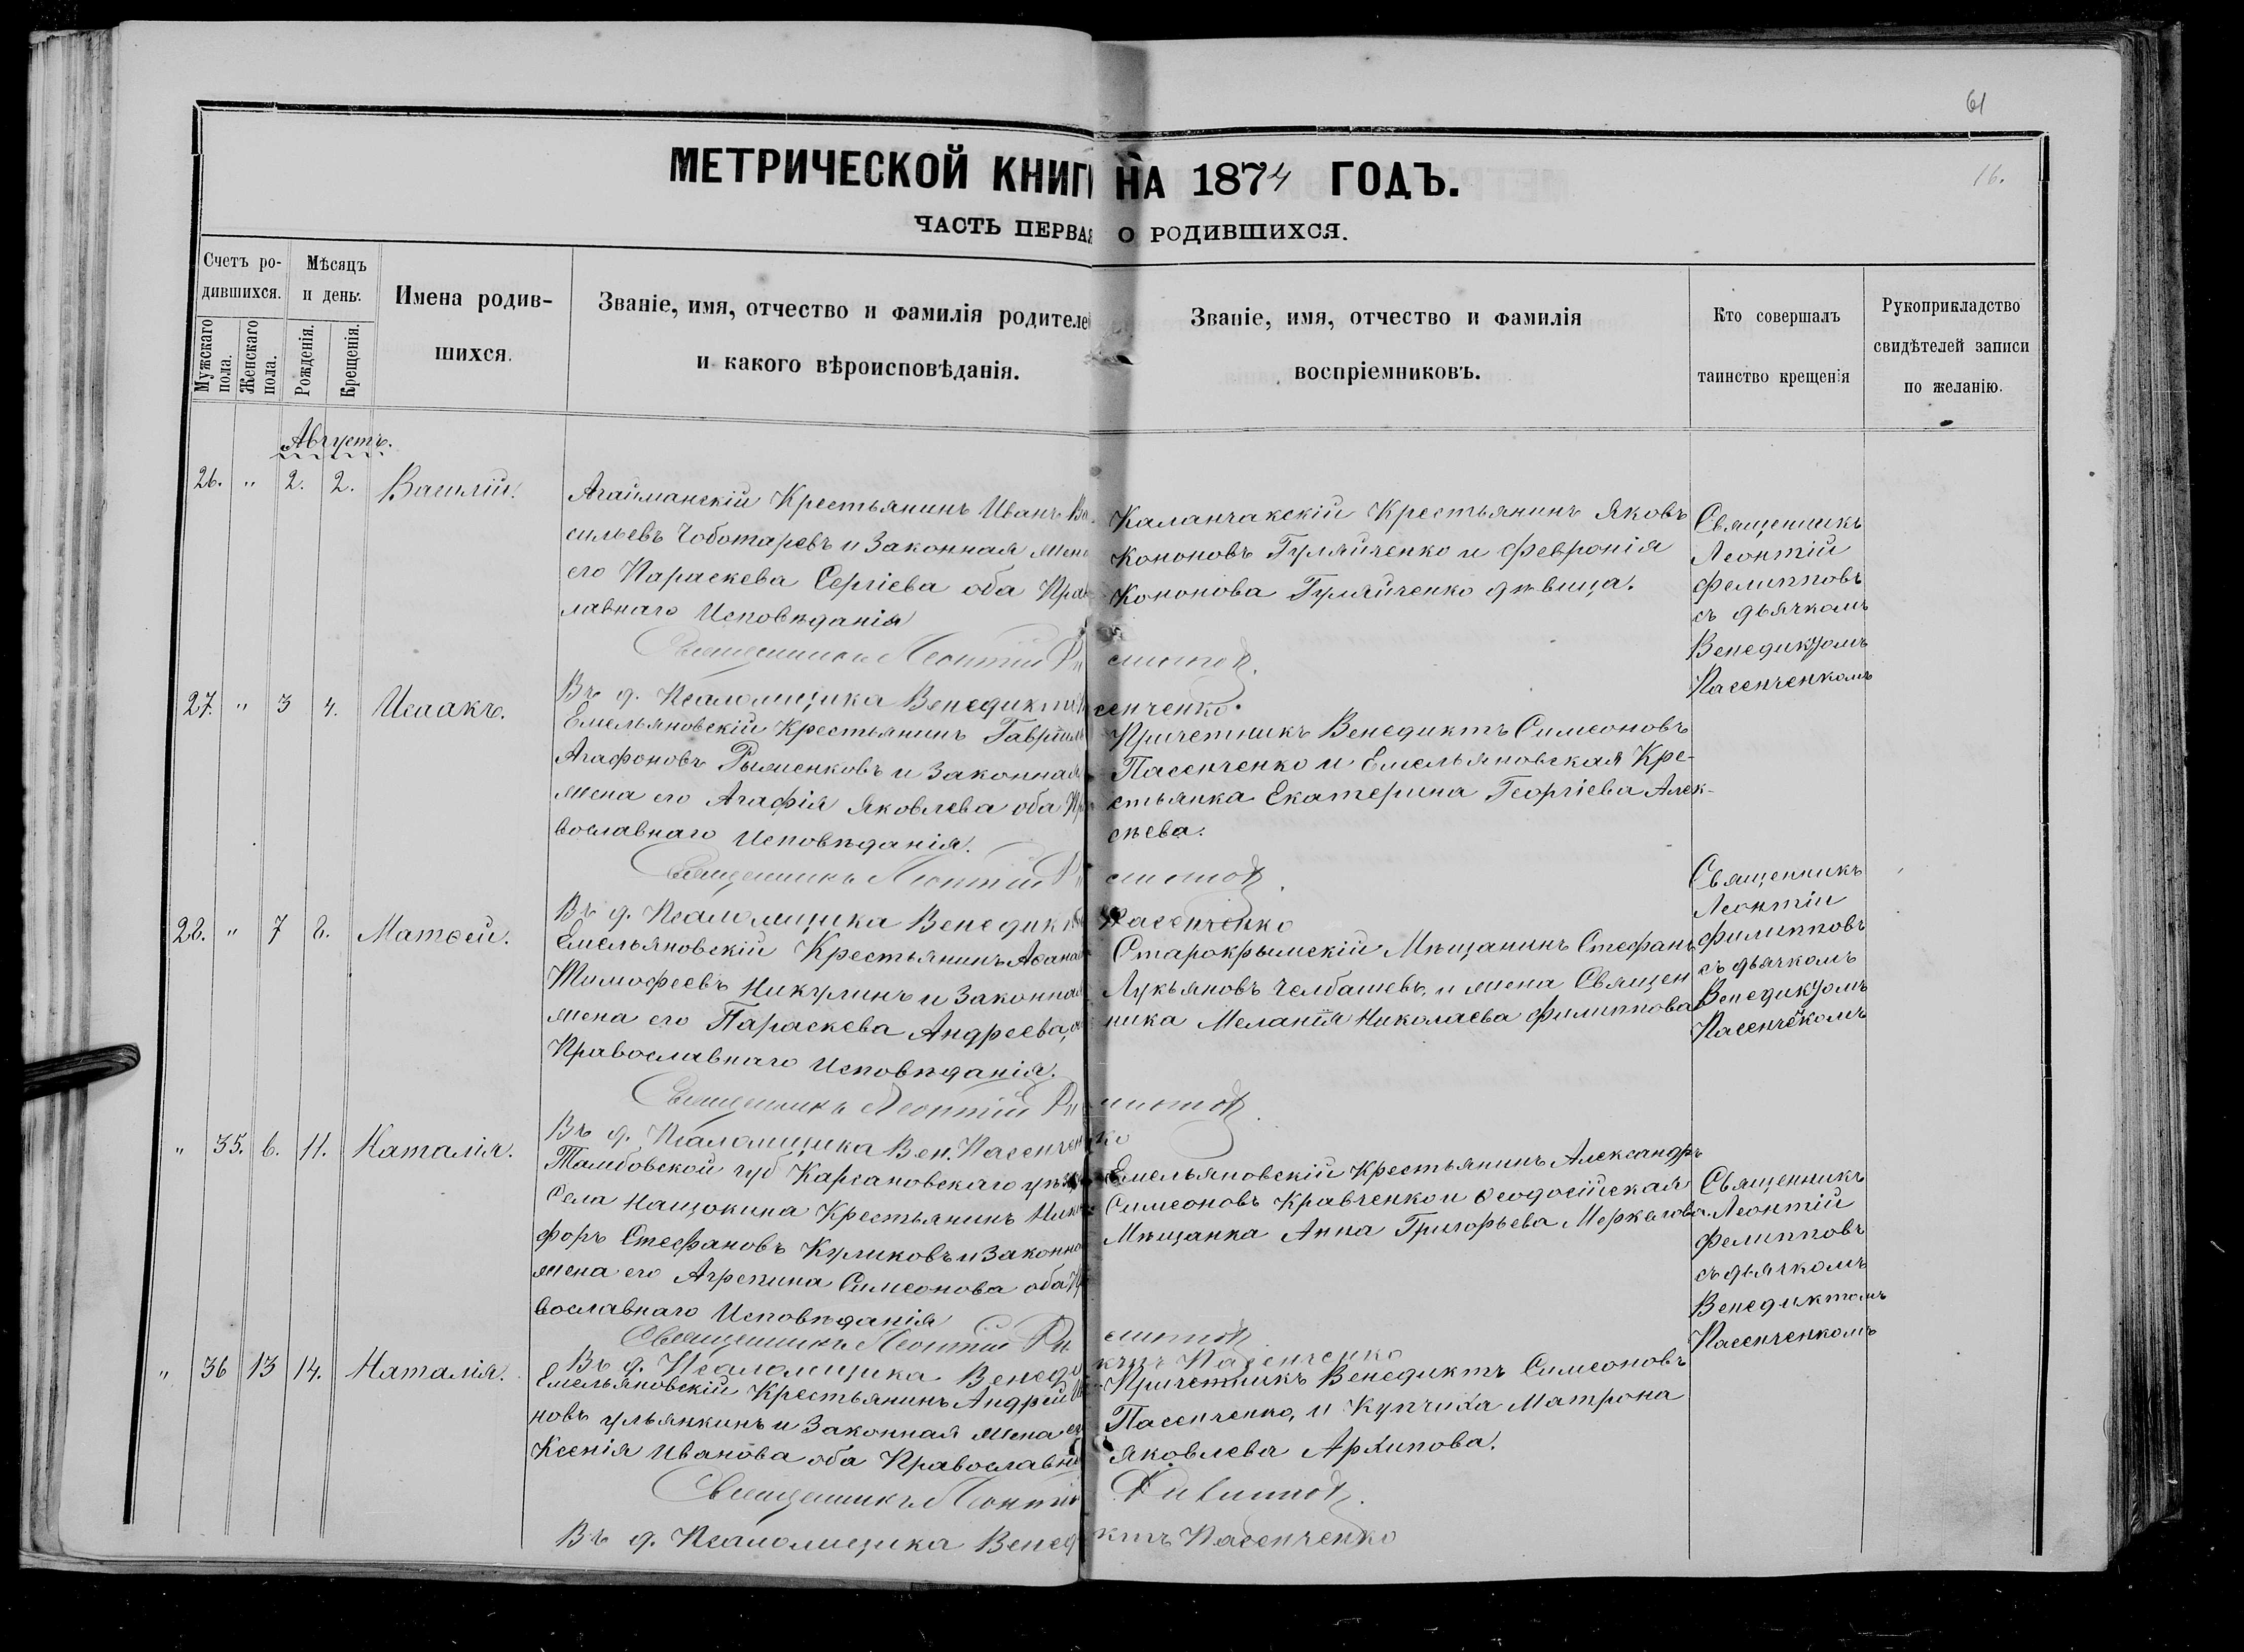 61
16.
МЕТРИЧЕСКОЙ КНИГИ НА 1874 ГОДЪ.
ЧАСТЬ ПЕРВАЯ О РОДИВШИХСЯ.
Счетъ ро-
дившихся.
Мужскаго
пола.
Женскаго
пола.
Мѣсяцъ
и день.
Рожденія.
Крещенія.
Имена родив-
шихся.
Званіе, имя, отчество и фамилія родителей
и какого вѣроисповѣданія.
Званіе, имя, отчество и фамилія
воспріемниковъ.
Кто совершалъ
таинство крещенія
Рукоприкладство
свидѣтелей записи
по желанію.
Августъ.
26. " 2. 2. Василій.
Агайманскій Крестьянинъ Иванъ Ва
сильевъ Чоботаревъ и Законная жена
его Параскева Сергіева оба Прав
лавнаго Исповѣданія
Каланчакскій Крестьянинъ Яковъ
Кононовъ Гуляйченко и Февронія
Кононова Гуляйченко дѣвица.
Священникъ
Леонтій
Фелипповъ
съ дьячкомъ
Венедиктомъ
Пасенченкомъ
Священникъ Леонтій Филиппов
Въ д. Псаломщика Венедиктъ Пасенченко.
27. " 3 4. Исаакъ.
Емельяновскій Крестьянинъ Гавріилъ
Агафоновъ Рыженковъ и Законная
жена его Агафія Яковлева оба Пра
вославнаго Исповѣданія.
Причетникъ Венедиктъ Симеоновъ
Пасенченко и Емельяновская Кре-
стьянка Екатерина Георгіева Алек-
сѣева.
Священникъ Леонтій Филиппов
Въ д. Псаломщика Венедиктъ Пасенченко
28. " 7 8. Матѳей.
Емельяновскій Крестьянинъ Аѳана
Тимофеевъ Никулинъ и Законная
жена его Параскева Андреева, оба
Православнаго Исповѣданія.
Старокрымскій Мѣщанинъ Стефанъ
Лукьяновъ Челбашевъ, и жена Священ
ника Меланія Николаева Филиппова
Священникъ
Леонтій
Филипповъ
съ дьячкомъ
Венедиктомъ
Пасенчёкомъ
Священникъ Леонтій Филиппов
Въ д. Псаломщика Вен. Пасенченко
" 35. 6. 11. Наталія.
Тамбовской губ Карсановскаго уѣзда
Села Нащокина Крестьянинъ Ники
форъ Стефановъ Куликовъ и Законная
жена его Агрепина Симеонова оба Пра
вославнаго Исповѣданія
Емельяновскій Крестьянинъ Александръ
Симеоновъ Кравченко и Ѳеодосійская
Мѣщанка Анна Григорьева
Священникъ
Леонтій
Фелипповъ
съ дьячкомъ
Венедиктомъ
Пасенченкомъ
Священникъ Леонтій Филиппов
Въ д. Псаломщика Венедиктъ Пасенченко
" 36 13 14. Наталія.
Емельяновскій Крестьянинъ Андрей Ива
новъ Ульянкинъ и Законная жена его
Ксенія Иванова оба Православна
Причетникъ Венедиктъ Симеоновъ
Пасенченко, и Купчиха Матрона
Яковлева Архипова.
Священникъ Леонтій Филиппов.
Въ д. Псаломщика Венедиктъ Пасенченко